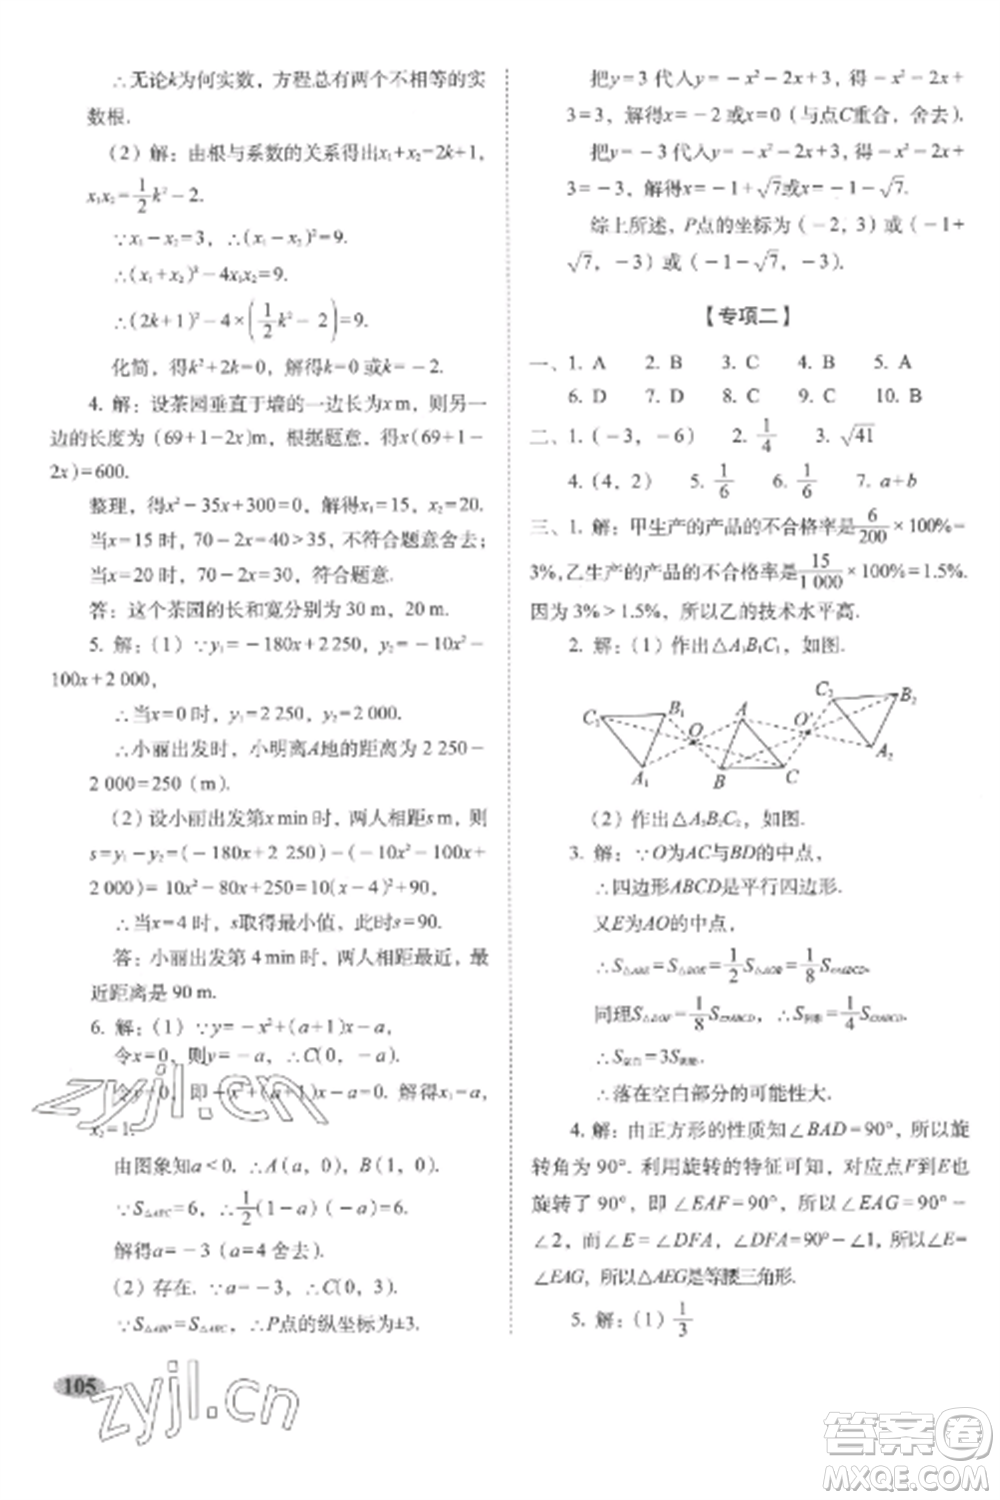 ∴无论k为何实数，方程总有两个不相等的实
数根.
（2）解：由根与系数的关系得出x₁+x₂=2k+1，
x₁x₂=1/2k²-2.
∵x₁-x₂=3，∴(x₁-x₂)²=9.
∴(x₁+x₂)²-4x₁x₂=9.
∴(2k+1)²-4×(1/2k²-2)=9.
化简，得k²+k=0，解得k=0或k=-1.
4. 解：设茶园垂直于墙的一边长为x m，则另一
边的长度为（69+1-2x）m，根据题意，得x(69+1-
2x)=600.
整理，得x²-35x+300=0，解得x₁=15，x₂=20.
当x=15时，70-2x=40>35，不符合题意舍去；
当x=20时，70-2x=30，符合题意.
答：这个茶园的长和宽分别为 30 m，20 m.
5. 解：（1）∵y₁=-180x+2 250，y₂=-10x²-
100x+2 000，
∴当x=0时，y₁=2 250，y₂=2 000.
∴小丽出发时，小明离A地的距离为 2 250-
2 000=250（m）.
（2）设小丽出发第x min时，两人相距s m，则
s=y₁-y₂=(-180x+2 250)-(-10x²-100x+
2 000)=10x²-80x+250=10(x-4)²+90，
∴当x=4时，s取得最小值，此时s=90.
答：小丽出发第 4 min时，两人相距最近，最
近距离是 90 m.
6. 解：（1）∵y=-x²+(a+1)x-a，
令x=0，则y=-a，∴C(0，-a).
令y=0，即-x²+(a+1)x-a=0. 解得x₁=a，
x₂=1.
由图象知a<0，∴A(a，0)，B(1，0).
∵S△ABC=6，∴1/2(1-a)(-a)=6.
解得a=-3（a=4舍去）.
（2）存在. ∵a=-3，∴C(0，3).
∵S△ABP=S△ABC，∴P点的纵坐标为±3.
105
zyjl.cn
zyjl.cn
把y=3代入y=-x²-2x+3，得-x²-2x+
3=3，解得x=-2或x=0（与点C重合，舍去）.
把y=-3代入y=-x²-2x+3，得-x²-2x+
3=-3，解得x=-1+√7或x=-1-√7.
综上所述，P点的坐标为（-2，3）或（-1+
√7，-3）或（-1-√7，-3）.
【专项二】
一、1. A 2. B 3. C 4. B 5. A
6. D 7. D 8. C 9. C 10. B
二、1.（-3，-6） 2. 1/4 3. √41
4.（4，2） 5. 1/6 6. 1/6 7. a+b
三、1. 解：甲生产的产品的不合格率是6/200×100%=
3%，乙生产的产品的不合格率是15/1 000×100%=1.5%.
因为 3%>1.5%，所以乙的技术水平高.
2. 解：（1）作出△A₁B₁C₁，如图.
C₁ B₁ O A₁ A B C O′ C₂ B₂ A₂
（2）作出△A₂B₂C₂，如图.
3. 解：∵O为AC与BD的中点，
∴四边形ABCD是平行四边形.
又E为AO的中点，
∴S△ABE=S△BOE=1/2S△AOB=1/8S▱ABCD.
同理S△DOF=1/8S▱ABCD，∴S阴影=1/4S▱ABCD.
∴S空白=3S阴影.
∴落在空白部分的可能性大.
4. 解：由正方形的性质知∠BAD=90°，所以旋
转角为 90°. 利用旋转的特征可知，对应点F到E也
旋转了 90°，即∠EAF=90°，所以∠EAG=90°-
∠2，而∠E=∠DFA，∠DFA=90°-∠1，所以∠E=
∠EAG，所以△AEG是等腰三角形.
5. 解：（1）1/3
答案卷
MXQE.COM